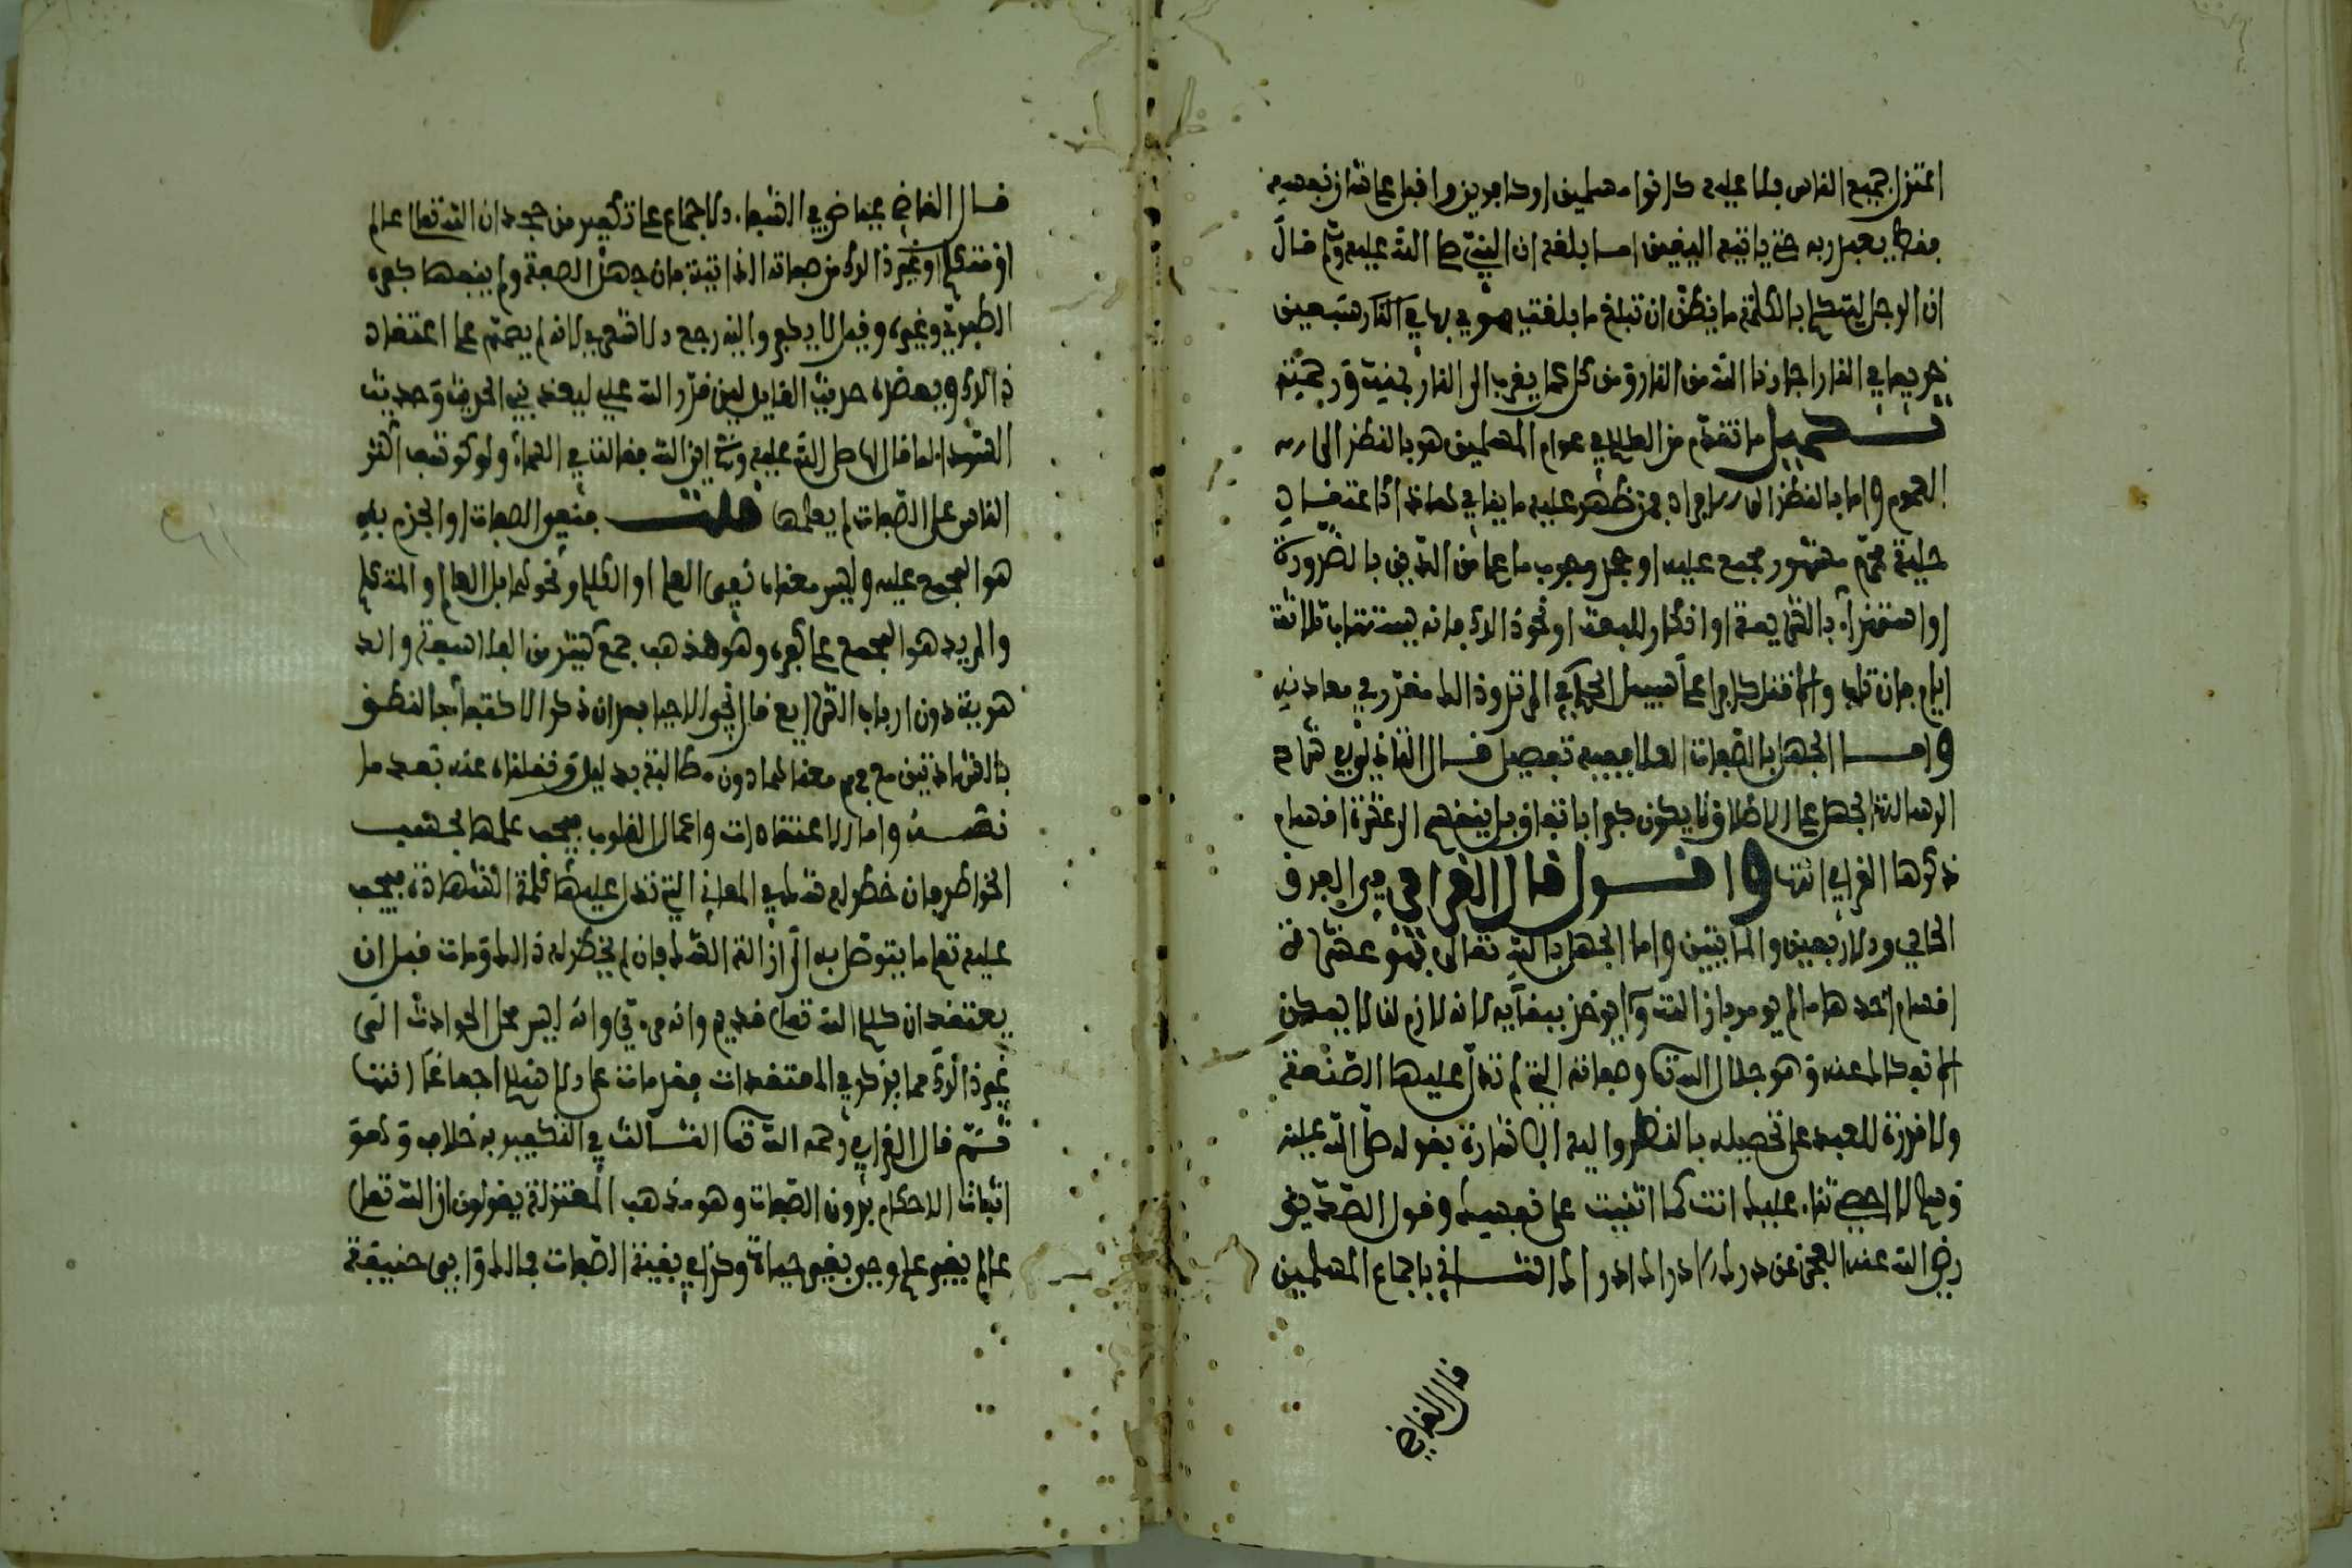 اعتزل جميع الناس فلا عليه كانوا مسلمين او كافرين واقبل على شان نفسه
فقط يعبد ربه حتى ياتيه اليقين اما بلغه ان النبي صلى الله عليه وسلم قال
ان الرجل ليتكلم بالكلمة ما يظن ان تبلغ ما بلغت يهوي بها في النار سبعين
خريفا في النار اجارنا الله من النار ومن كل عمل يقرب الى النار بمنه ورحمته
ما تقدم من الكلام في عوام المسلمين هو بالنظر الى
العموم واما بالنظر الى الافراد فمن ظهر عليه ما ينافي الايمان كاعتقاد
حلية محرم مشهور مجمع عليه او جحد وجوب ما علم من الدين بالضرورة
او استهزاء بالشريعة او انكار للبعث او نحو ذالك فانه يستتاب ثلاثة
ايام فان تاب والا قتل كافرا على سبيل الحكم في المرتد وذالك مقرر في معادنه
واما الجهل بالصفات العلا ففيه تفصيل قال القاني في شرح
الرسالة الجهل على الاطلاق لا يكون كفرا باتفاق بل ينقسم الى عشرة اقسام
ذكرها القرافي انتهى واقول قال القرافي في الفرق
الحادي والاربعين والمايتين واما الجهل بالله تعالى فهو عشرة
اقسام احدها ما لم يومر بازالته ولم يوخذ ببقايه لانه لازم لنا لا يمكن
الانفكاك عنه وهو جلال الله تعالى وصفاته التي لم تدل عليها الصنعة
ولا قدرة للعبد على تحصيله بالنظر واليه الاشارة بقوله صلى الله عليه
وسلم لا احصي ثناء عليك انت كما اثنيت على نفسك وقول الصديق
رضي الله عنه العجز عن درك الادراك ادراك الثاني باجماع المسلمين
قال القاضي
قال القاضي عياض في الشفاء والاجماع على تكفير من جحد ان الله تعالى عالم
او متكلم او غير ذالك من صفاته الذاتية فان جهل الصفة ولم ينفها كفره
الطبري وغيره وقيل لا يكفر واليه رجع الاشعري لانه لم يصمم على اعتقاد
ذالك ويعضده حديث القايل لين قدر الله علي ليعذبني الحديث وحديث
السوداء لما قال لها صلى الله عليه وسلم اين الله فقالت في السماء ولو كوشف اكثر
الناس على الصفات لم يعلمها قلت فنفي الصفات او الجزم به
هو المجمع عليه وليس معناه نفي العلم او الكلام ونحوهما بل العالم والمتكلم
والمريد هو المجمع على كفره وهو مذهب جمع كثير من الفلاسفة والد
هرية دون ارباب الشرايع قال في الاحيا بعد ان ذكر الاكتفاء بالنطق
بالشهادتين مع فهم معناهما دون مطالبة بدليل ونقلناه عنه بعد ما
نصه واما الاعتقادات واعمال القلوب فيجب علمها بحسب
الخواطر فان خطر له شك في المعاني التي تدل عليها كلمة الشهادة فيجب
عليه تعلم ما يتوصل به الى ازالة الشك فان لم يخطر له ذالك ومات قبل ان
يعتقد ان كلام الله تعالى قديم وانه مرءي وانه ليس محل الحوادث الى
غير ذالك مما يذكر في المعتقدات فقد مات على الاسلام اجماعا انتهى
ثم قال القرافي رحمه الله تعالى الثالث في التكفير به خلاف وهو
اثبات الاحكام دون الصفات وهو مذهب المعتزلة يقولون ان الله تعالى
عالم بغير علم وحي بغير حياة وكذا في بقية الصفات فمالك وابي حنيفة